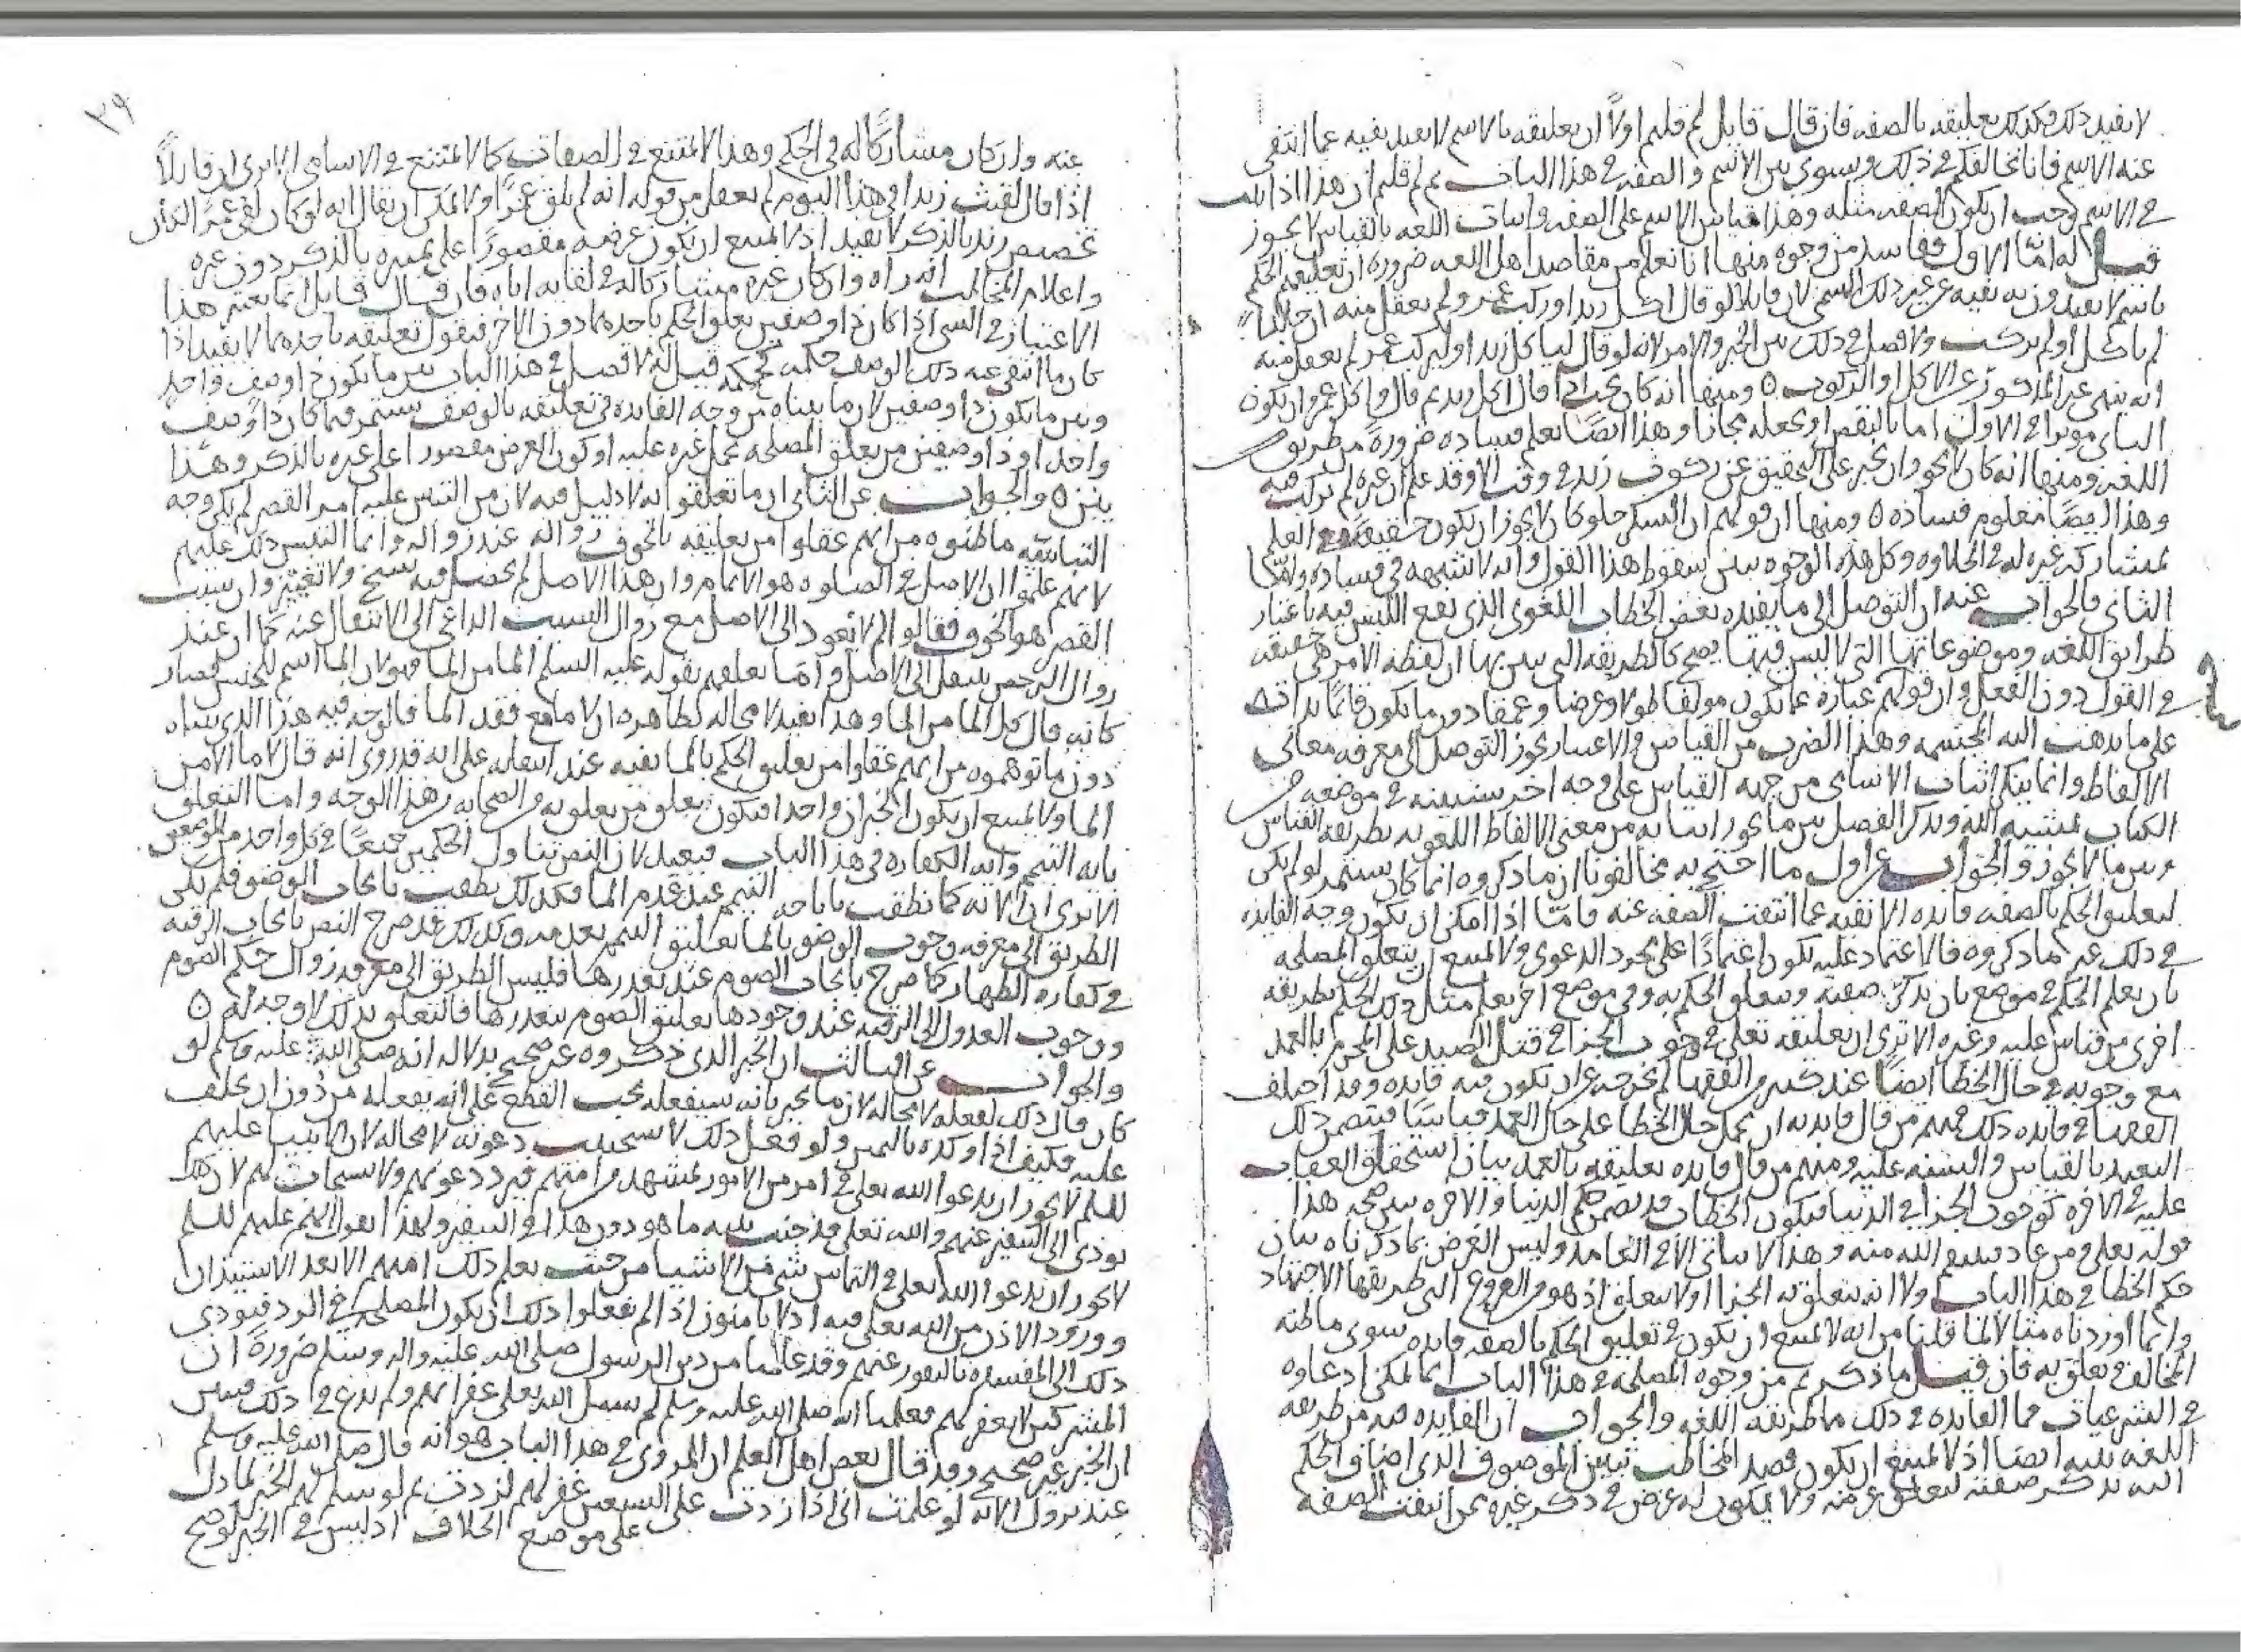 لا يفيد ذلك فكذلك تعليقه بالصفه فان قال قايل لم قلتم اولاً ان تعليقه بالاسم لا يفيد نفيه عما انتفى
عنه الاسم فانا نخالفكم في ذلك ونسوي بين الاسم والصفه في هذا الباب ثم لم قلتم ان هذا اذا ثبت
في الاسم وجب ان يكون الصفه مثله وهذا قياس الاسم على الصفه واثبات اللغه بالقياس لا يجوز
قيل له اما الاول ففاسد من وجوه منها انا نعلم من مقاصد اهل اللغه ضرورة ان تعليقهم الحكم
باسم لا يفيدون به نفيه عن غير ذلك المسمى لان قايلا لو قال اكل زيد او ركب عمرو لم يعقل منه ان خالداً
لم ياكل او لم يركب ولا فصل في ذلك بين الخبر والامر لانه لو قال لياكل زيد او ليركب عمرو لم يعقل منه
انه ينهى غير المذكور عن الاكل او الركوب ٥ ومنها انه كان يجب اذا قال اكل زيد ثم قال واكل عمرو ان يكون
الثاني موثرا في الاول اما بالنقض او يجعله مجازا وهذا ايضا نعلم فساده ضرورة من طريق
اللغه ومنها انه كان لا يجوز ان يخبر على التحقيق عن ركوب زيد في وقت الا وقد علم ان غيره لم يركب فيه
وهذا ايضا معلوم فساده ٥ ومنها ان قولهم ان السكر حلو كان لا يجوز ان يكون حقيقة مع العلم
بمشاركة غيره له في الحلاوه وكل هذه الوجوه يبين سقوط هذا القول وانه لا شبهه في فساده واما
الثاني فالجواب عنه ان التوصل الى ما يفيده بعض الخطاب اللغوي الذي يقع اللبس فيه باعتبار
طرايق اللغه وموضوعاتها التي لا لبس فيها يصح كالطريقه التي يبين بها ان لفظة الامر هي حقيقه
في القول دون الفعل وان قولهم عبارة عما يكون مولفا طولا وعرضا وعمقا دون ما يكون قائما بذاته
على ما يذهب اليه المجسمه وهذا الضرب من القياس والاعتبار يجوز التوصل الى معرفه معاني
الالفاظ وانما ينكر اثبات الاسامي من جهه القياس على وجه اخر سنبينه في موضعه من
الكتاب بمشيه الله ونذكر الفصل بين ما يجوز اثباته من معنى الالفاظ اللغويه بطريقه القياس
وبين ما لا يجوز والجواب عن اول ما احتج به مخالفونا ان ما ذكروه انما كان يستمر لو لم يكن
لتعليق الحكم بالصفه فايده الا نفيه عما انتفت الصفه عنه فاما اذا امكن ان يكون وجه الفايده
في ذلك غير ما ذكروه فالاعتماد عليه يكون اعتمادًا على مجرد الدعوى ولا يمتنع ان يتعلق المصلحه
بان يعلم الحكم في موضع بان يذكر صفته ويتعلق الحكم به وفي موضع اخر يعلم مثل ذلك الحكم بطريقه
اخرى من قياس عليه وغيره الا ترى ان تعليقه تعالى في وجوب الجزا في قتل الصيد على المحرم بالعمد
مع وجوبه في حال الخطا ايضا عند كثير من الفقها لم يخرجه عن ان يكون فيه فايده وقد اختلف
الفقها في فايده ذلك فمنهم من قال فايدته ان يحمل حال الخطا على حال العمد قياسا فيتضمن ذلك
التعبد بالقياس والتنبيه عليه ومنهم من قال فايده تعليقه بالعمد بيان استحقاق العقاب
عليه في الاخره كوجوب الجزا في الدنيا فيكون الخطاب قد تضمن حكم الدنيا والاخره يبين صحه هذا
قوله تعالى ومن عاد فينتقم الله منه وهذا لا يتاتى الا في العامد وليس الغرض بما ذكرناه بيان
حكم الخطا في هذا الباب ولا انه يتعلق به الجزا او لا يتعلق اذ هو من الفروع التي طريقها الاجتهاد
وانما اوردناه مثالا لما قلنا من انه لا يمتنع ان يكون في تعليق الحكم بالصفه فايده سوى ما ظنه
المخالف وتعلق به فان قيل ما ذكرتم من وجوه المصلحه في هذا الباب انما يمكن ادعاوه
في الشرعيات فما الفايده في ذلك من طريقه اللغه والجواب ان الفايده فيه من طريقه
اللغه بينه ايضا اذ لا يمتنع ان يكون قصد المخاطب تبيين الموصوف الذي اضاف الحكم
اليه بذكر صفته لتعلق غرضه ولا يكون له غرض في ذكر غيره ممن انتفت الصفه
٣٩
عنه وان كان مشاركًا له في الحكم وهذا لا يمتنع في الصفات كما لا يمتنع في الاسامي الا ترى ان قايلاً
اذا قال لقيت زيدا في هذا اليوم لم يعقل من قوله انه لم يلق عمرًا ولا يمكن ان يقال انه لو كان لقي عمرًا لكان
تخصيص زيد بالذكر لا يفيد اذ لا يمتنع ان يكون غرضه مقصورًا على تمييزه بالذكر دون غيره
واعلام المخاطب انه راه وان كان غيره مشاركا له في لقايه اياه فان قال قايل انما نعتبر هذا
الاعتبار في الشي اذا كان ذا وصفين يعلق الحكم باحدهما دون الاخر فنقول تعليقه باحدهما لا يفيد اذا
كان ما انتفى عنه ذلك الوصف حكمه كحكمه قيل له لا فصل في هذا الباب بين ما يكون ذا وصف واحد
وبين ما يكون ذا وصفين لان ما بيناه من وجه الفايده في تعليقه بالوصف يستمر فيما كان ذا وصف
واحد او ذا وصفين من تعلق المصلحه بحمل غيره عليه او كون الغرض مقصورا على غيره بالذكر وهذا
بين ٥ والجواب عن الثاني ان ما تعلقوا به لا دليل فيه لان من التبس عليه امر القصر لم يكن وجه
التباسه ما ظنوه من انهم عقلوا من تعليقه بالخوف زواله عند زواله وانما التبس ذلك عليهم
لانهم علموا ان الاصل في الصلوه هو الاتمام وان هذا الاصل لم يحصل فيه نسخ ولا تغيير وان سبب
القصر هو الخوف فقالوا لم لا نعود الى الاصل مع زوال السبب الداعي الى الانتقال عنه كما ان عند
زوال الرخص ينتقل الى الاصل واما تعلقهم بقوله عليه السلم الما من الما فهو لان الما اسم للجنس فصار
كانه قال كل الما من الما وهذا يفيد لا محاله بظاهره ان لا ما مع فقد الما فالوجه فيه هذا الذي بيناه
دون ما توهموه من انهم عقلوا من تعليق الحكم بالما نفيه عند انتفايه على انه قد روي انه قال لا ما الا من
الما ولا يمتنع ان يكون الخبران واحدا فيكون تعلق من تعلق به من الصحابه من هذا الوجه واما التعلق
بايه التيمم وايه الكفاره في هذا الباب فبعيد لان النص تناول الحكمين جميعًا في كل واحد من الموضعين
الا ترى ان الايه كما نطقت باباحه التيمم عند عدم الما فكذلك نطقت بايجاب الوضو فلم يكن
الطريق الى معرفه وجوب الوضو بالما تعليق التيمم بعدمه وكذلك قد صرح النص بايجاب الرقبه
في كفاره الظهار كما صرح بايجاب الصوم عند تعذرها فليس الطريق الى معرفه زوال حكم الصوم
ووجوب العدول الى الرقبه عند وجودها تعليق الصوم بتعذرها فالتعلق بذلك لا وجه له ٥
والجواب عن الثالث ان الخبر الذي ذكروه غير صحيح بدلاله انه صلى الله عليه وسلم لو
كان قال ذلك لفعله لا محاله لان ما يخبر بانه سيفعله يجب القطع على انه يفعله من دون ان يحلف
عليه فكيف اذا اوكده باليمين ولو فعل ذلك لاستجيبت دعوته لا محاله لان الانبيا عليهم
السلم لا يجوز ان يدعوا الله تعالى في امر من الامور بمشهد من امتهم فيرد دعوتهم ولا يستجاب لهم لان ذلك
يودي الى التنفير عنهم والله تعالى قد جنب نبيه ما هو دون هذا في التنفير ولهذا نقول انهم عليهم السلم
لا يجوز ان يدعوا الله تعالى في التماس شي من الاشيا من حيث يعلم ذلك امتهم الا بعد الاستيذان
وورود الاذن من الله تعالى فيه اذ لا يامنون اذا لم يفعلوا ذلك ان يكون المصلحه في الرد فيودي
ذلك الى المفسده بالنفور عنهم وقد علمنا من دين الرسول صلى الله عليه واله وسلم ضرورة ان
المشركين لا يغفر لهم فعلمنا انه صلى الله عليه وسلم لم يسل الله تعالى غفرانهم ولم يدع في ذلك فتبين
ان الخبر غير صحيح وقد قال بعض اهل العلم ان المروي في هذا الباب هو انه قال صلى الله عليه وسلم
عند نزول الايه لو علمت اني اذا زدت على السبعين غفر لهم لزدت ثم لو سلم لهم الخبر لما دل
على موضع الخلاف اذ ليس في الخبر لو صح